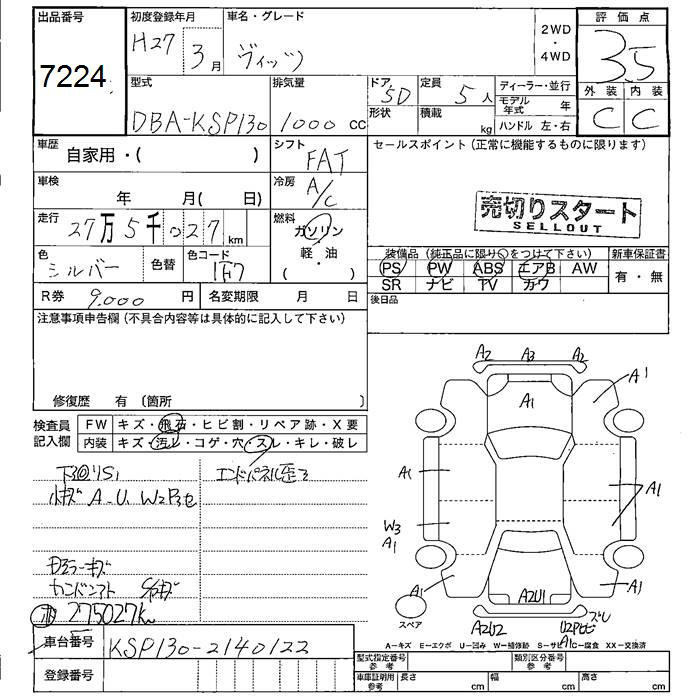 出品番号 初度登録年月 車名・グレード 2WD・4WD 評価点
7224 H27 3月 ヴィッツ 3.5
型式 排気量 ドア 5D 定員 5人 ディーラー・並行 外装 内装
DBA-KSP130 1000cc 形状 積載 kg モデル年式 年 C C
ハンドル 左・右
車歴 自家用・( ) シフト FAT セールスポイント(正常に機能するものに限ります)
車検 年 月( 日) 冷房 A/C
売切りスタート
SELLOUT
走行 27万5千027km 燃料 ガソリン・軽油( )
色 シルバー 色替 色コード 1F7
装備品(純正品に限り○をつけて下さい) 新車保証書
PS PW ABS エアB AW 有・無
SR ナビ TV カワ
R券 9,000円 名変期限 月 日 後日品
注意事項申告欄(不具合内容等は具体的に記入して下さい)
修復歴 有(箇所 )
検査員記入欄 FW キズ・飛石・ヒビ割・リペア跡・X要
内装 キズ・汚レ・コゲ・穴・スレ・キレ・破レ
下回りS1 エンドパネル歪ミ
小キズ A-U. W2P3也
ドアミラーキズ
275027km
車台番号 KSP130-2140122
登録番号
A2 A3 A2
A1
A1
A1
A1
W3
A1
A1
A1
A2U1
A2U2
スペア
A=キズ E=エクボ U=凹み W=補修跡 S=サビ C=腐食 XX=交換済
型式指定番号 参考 類別区分番号 参考
車庫証明用 参考 長さ cm 幅 cm 高さ cm